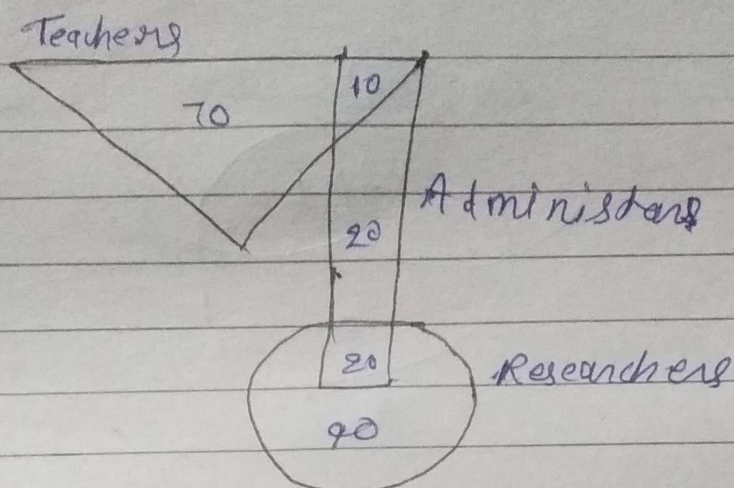 Teachers
10
70
Administars
20
20
Researchers
90